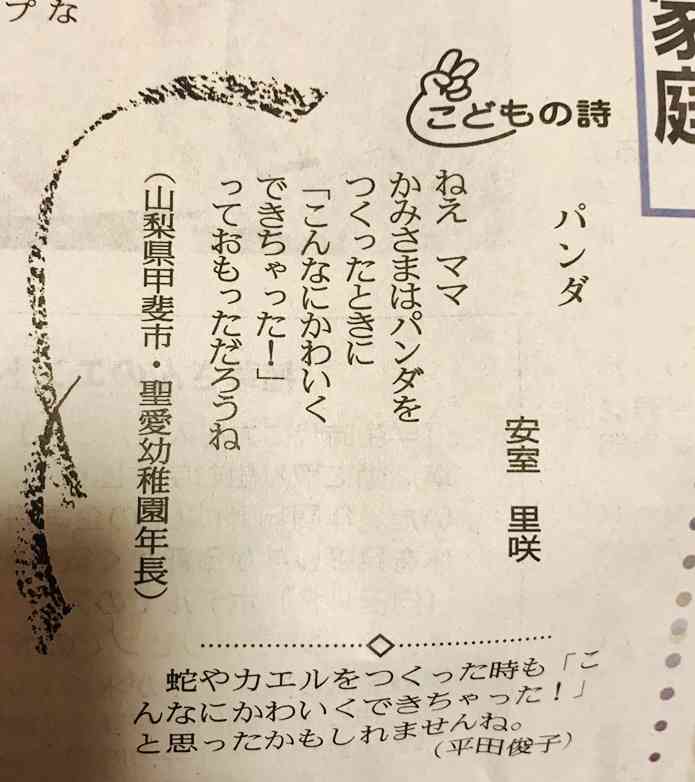 家庭
プな
こどもの詩
パンダ
安室 里咲
ねえ ママ
かみさまはパンダを
つくったときに
「こんなにかわいく
できちゃった!」
っておもっただろうね
(山梨県甲斐市・聖愛幼稚園年長)
蛇やカエルをつくった時も「こ
んなにかわいくできちゃった!」
と思ったかもしれませんね。
(平田俊子)